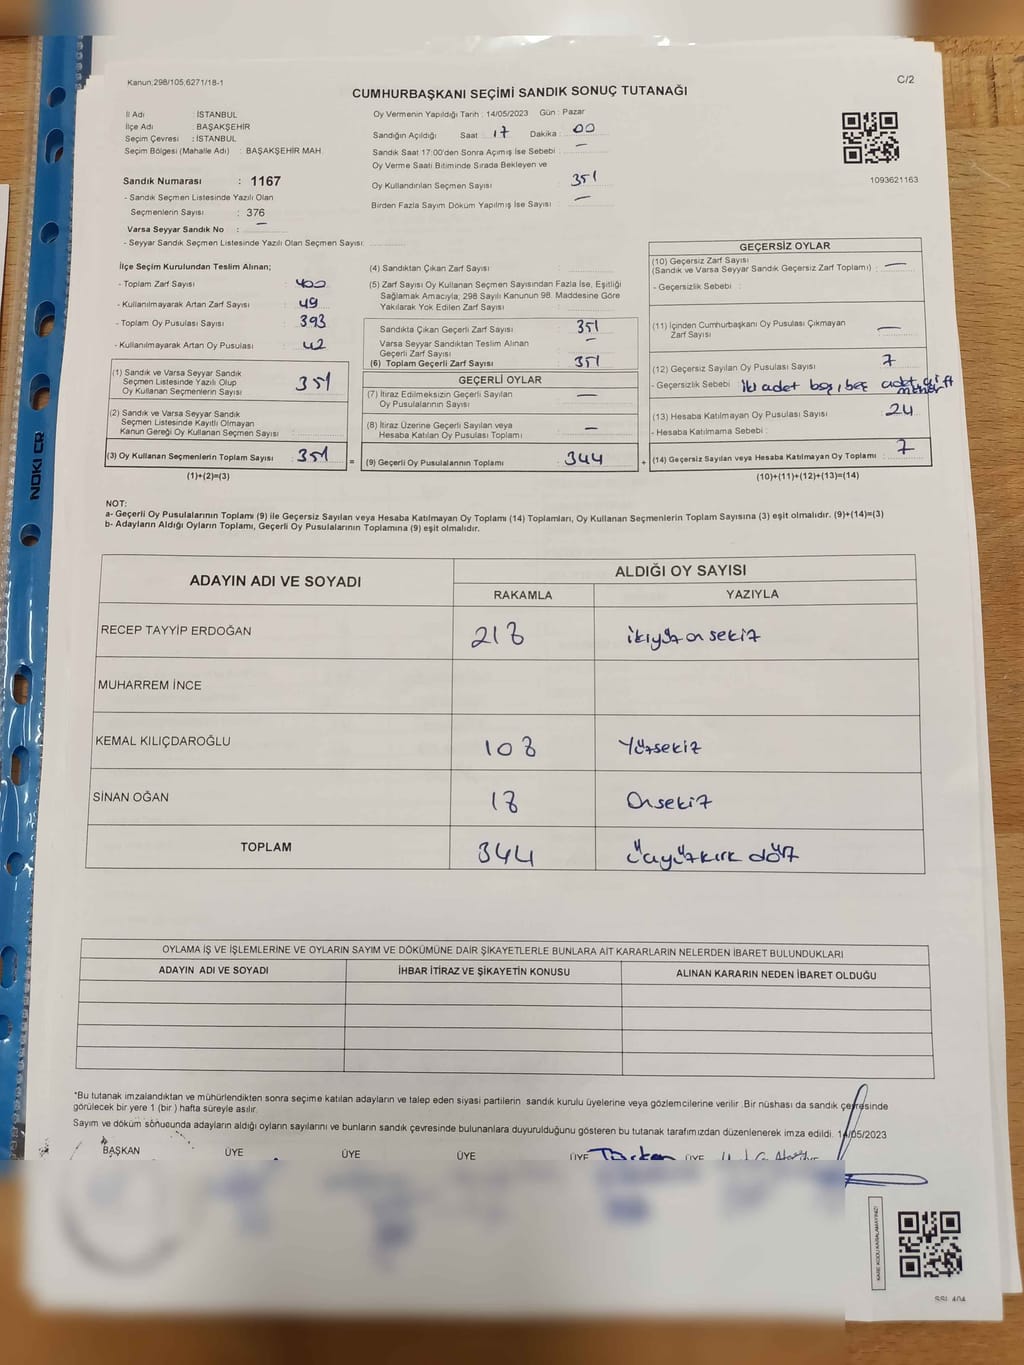 Kanun:298/105;6271/18-1
C/2
CUMHURBAŞKANI SEÇİMİ SANDIK SONUÇ TUTANAĞI
İl Adı : İSTANBUL
İlçe Adı : BAŞAKŞEHİR
Seçim Çevresi : İSTANBUL
Seçim Bölgesi (Mahalle Adı) : BAŞAKŞEHİR MAH.
Sandık Numarası : 1167
- Sandık Seçmen Listesinde Yazılı Olan
Seçmenlerin Sayısı : 376
Varsa Seyyar Sandık No : —
- Seyyar Sandık Seçmen Listesinde Yazılı Olan Seçmen Sayısı:
Oy Vermenin Yapıldığı Tarih : 14/05/2023 Gün : Pazar
Sandığın Açıldığı Saat : 17 Dakika : 00
Sandık Saat 17:00'den Sonra Açımış İse Sebebi : —
Oy Verme Saati Bitiminde Sırada Bekleyen ve
Oy Kullandırılan Seçmen Sayısı : 351
Birden Fazla Sayım Döküm Yapılmış İse Sayısı : —
1093621163
İlçe Seçim Kurulundan Teslim Alınan;
- Toplam Zarf Sayısı : 400
- Kullanılmayarak Artan Zarf Sayısı : 49
- Toplam Oy Pusulası Sayısı : 393
- Kullanılmayarak Artan Oy Pusulası : 42
(1) Sandık ve Varsa Seyyar Sandık
Seçmen Listesinde Yazılı Olup
Oy Kullanan Seçmenlerin Sayısı : 351
(2) Sandık ve Varsa Seyyar Sandık
Seçmen Listesinde Kayıtlı Olmayan
Kanun Gereği Oy Kullanan Seçmen Sayısı :
(3) Oy Kullanan Seçmenlerin Toplam Sayısı : 351
(1)+(2)=(3)
=
(4) Sandıktan Çıkan Zarf Sayısı :
(5) Zarf Sayısı Oy Kullanan Seçmen Sayısından Fazla İse, Eşitliği
Sağlamak Amacıyla; 298 Sayılı Kanunun 98. Maddesine Göre
Yakılarak Yok Edilen Zarf Sayısı :
Sandıkta Çıkan Geçerli Zarf Sayısı : 351
Varsa Seyyar Sandıktan Teslim Alınan
Geçerli Zarf Sayısı : —
(6) Toplam Geçerli Zarf Sayısı : 351
GEÇERLİ OYLAR
(7) İtiraz Edilmeksizin Geçerli Sayılan
Oy Pusulasının Sayısı : —
(8) İtiraz Üzerine Geçerli Sayılan veya
Hesaba Katılan Oy Pusulası Toplamı : —
(9) Geçerli Oy Pusulalarının Toplamı : 344
+
GEÇERSİZ OYLAR
(10) Geçersiz Zarf Sayısı
(Sandık ve Varsa Seyyar Sandık Geçersiz Zarf Toplamı) : —
- Geçersizlik Sebebi :
(11) İçinden Cumhurbaşkanı Oy Pusulası Çıkmayan
Zarf Sayısı : —
(12) Geçersiz Sayılan Oy Pusulası Sayısı : 7
- Geçersizlik Sebebi : iki adet boş, beş adet çift mühür
(13) Hesaba Katılmayan Oy Pusulası Sayısı : 24
- Hesaba Katılmama Sebebi :
(14) Geçersiz Sayılan veya Hesaba Katılmayan Oy Toplamı : 7
(10)+(11)+(12)+(13)=(14)
NOT:
a- Geçerli Oy Pusulalarının Toplamı (9) ile Geçersiz Sayılan veya Hesaba Katılmayan Oy Toplamı (14) Toplamları, Oy Kullanan Seçmenlerin Toplam Sayısına (3) eşit olmalıdır. (9)+(14)=(3)
b- Adayların Aldığı Oyların Toplamı, Geçerli Oy Pusulalarının Toplamına (9) eşit olmalıdır.
ADAYIN ADI VE SOYADI
ALDIĞI OY SAYISI
RAKAMLA YAZIYLA
RECEP TAYYİP ERDOĞAN 218 ikiyüz on sekiz
MUHARREM İNCE
KEMAL KILIÇDAROĞLU 108 Yüzsekiz
SİNAN OĞAN 18 Onsekiz
TOPLAM 344 üçyüzkırk dört
OYLAMA İŞ VE İŞLEMLERİNE VE OYLARIN SAYIM VE DÖKÜMÜNE DAİR ŞİKAYETLERLE BUNLARA AİT KARARLARIN NELERDEN İBARET BULUNDUKLARI
ADAYIN ADI VE SOYADI İHBAR İTİRAZ VE ŞİKAYETİN KONUSU ALINAN KARARIN NEDEN İBARET OLDUĞU
*Bu tutanak imzalandıktan ve mühürlendikten sonra seçime katılan adayların ve talep eden siyasi partilerin sandık kurulu üyelerine veya gözlemcilerine verilir .Bir nüshası da sandık çevresinde
görülecek bir yere 1 (bir ) hafta süreyle asılır.
Sayım ve döküm sonucunda adayların aldığı oyların sayılarını ve bunların sandık çevresinde bulunanlara duyurulduğunu gösteren bu tutanak tarafımızdan düzenlenerek imza edildi. 14/05/2023
BAŞKAN ÜYE ÜYE ÜYE ÜYE ÜYE
KARE KODU KARALAMAYINIZ!
NOKI CR